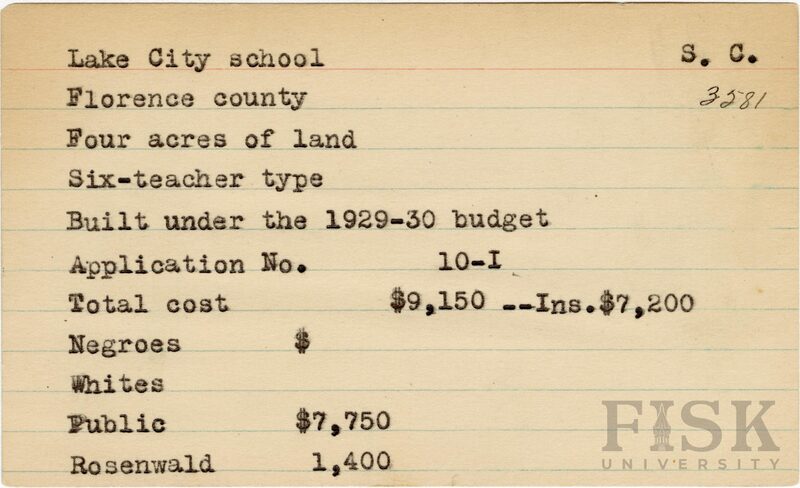 Lake City school S. C.
Florence county 3581
Four acres of land
Six-teacher type
Built under the 1929-30 budget
Application No. 10-I
Total cost $9,150 --Ins.$7,200
Negroes $
Whites
Public $7,750
Rosenwald 1,400
FISK
UNIVERSITY